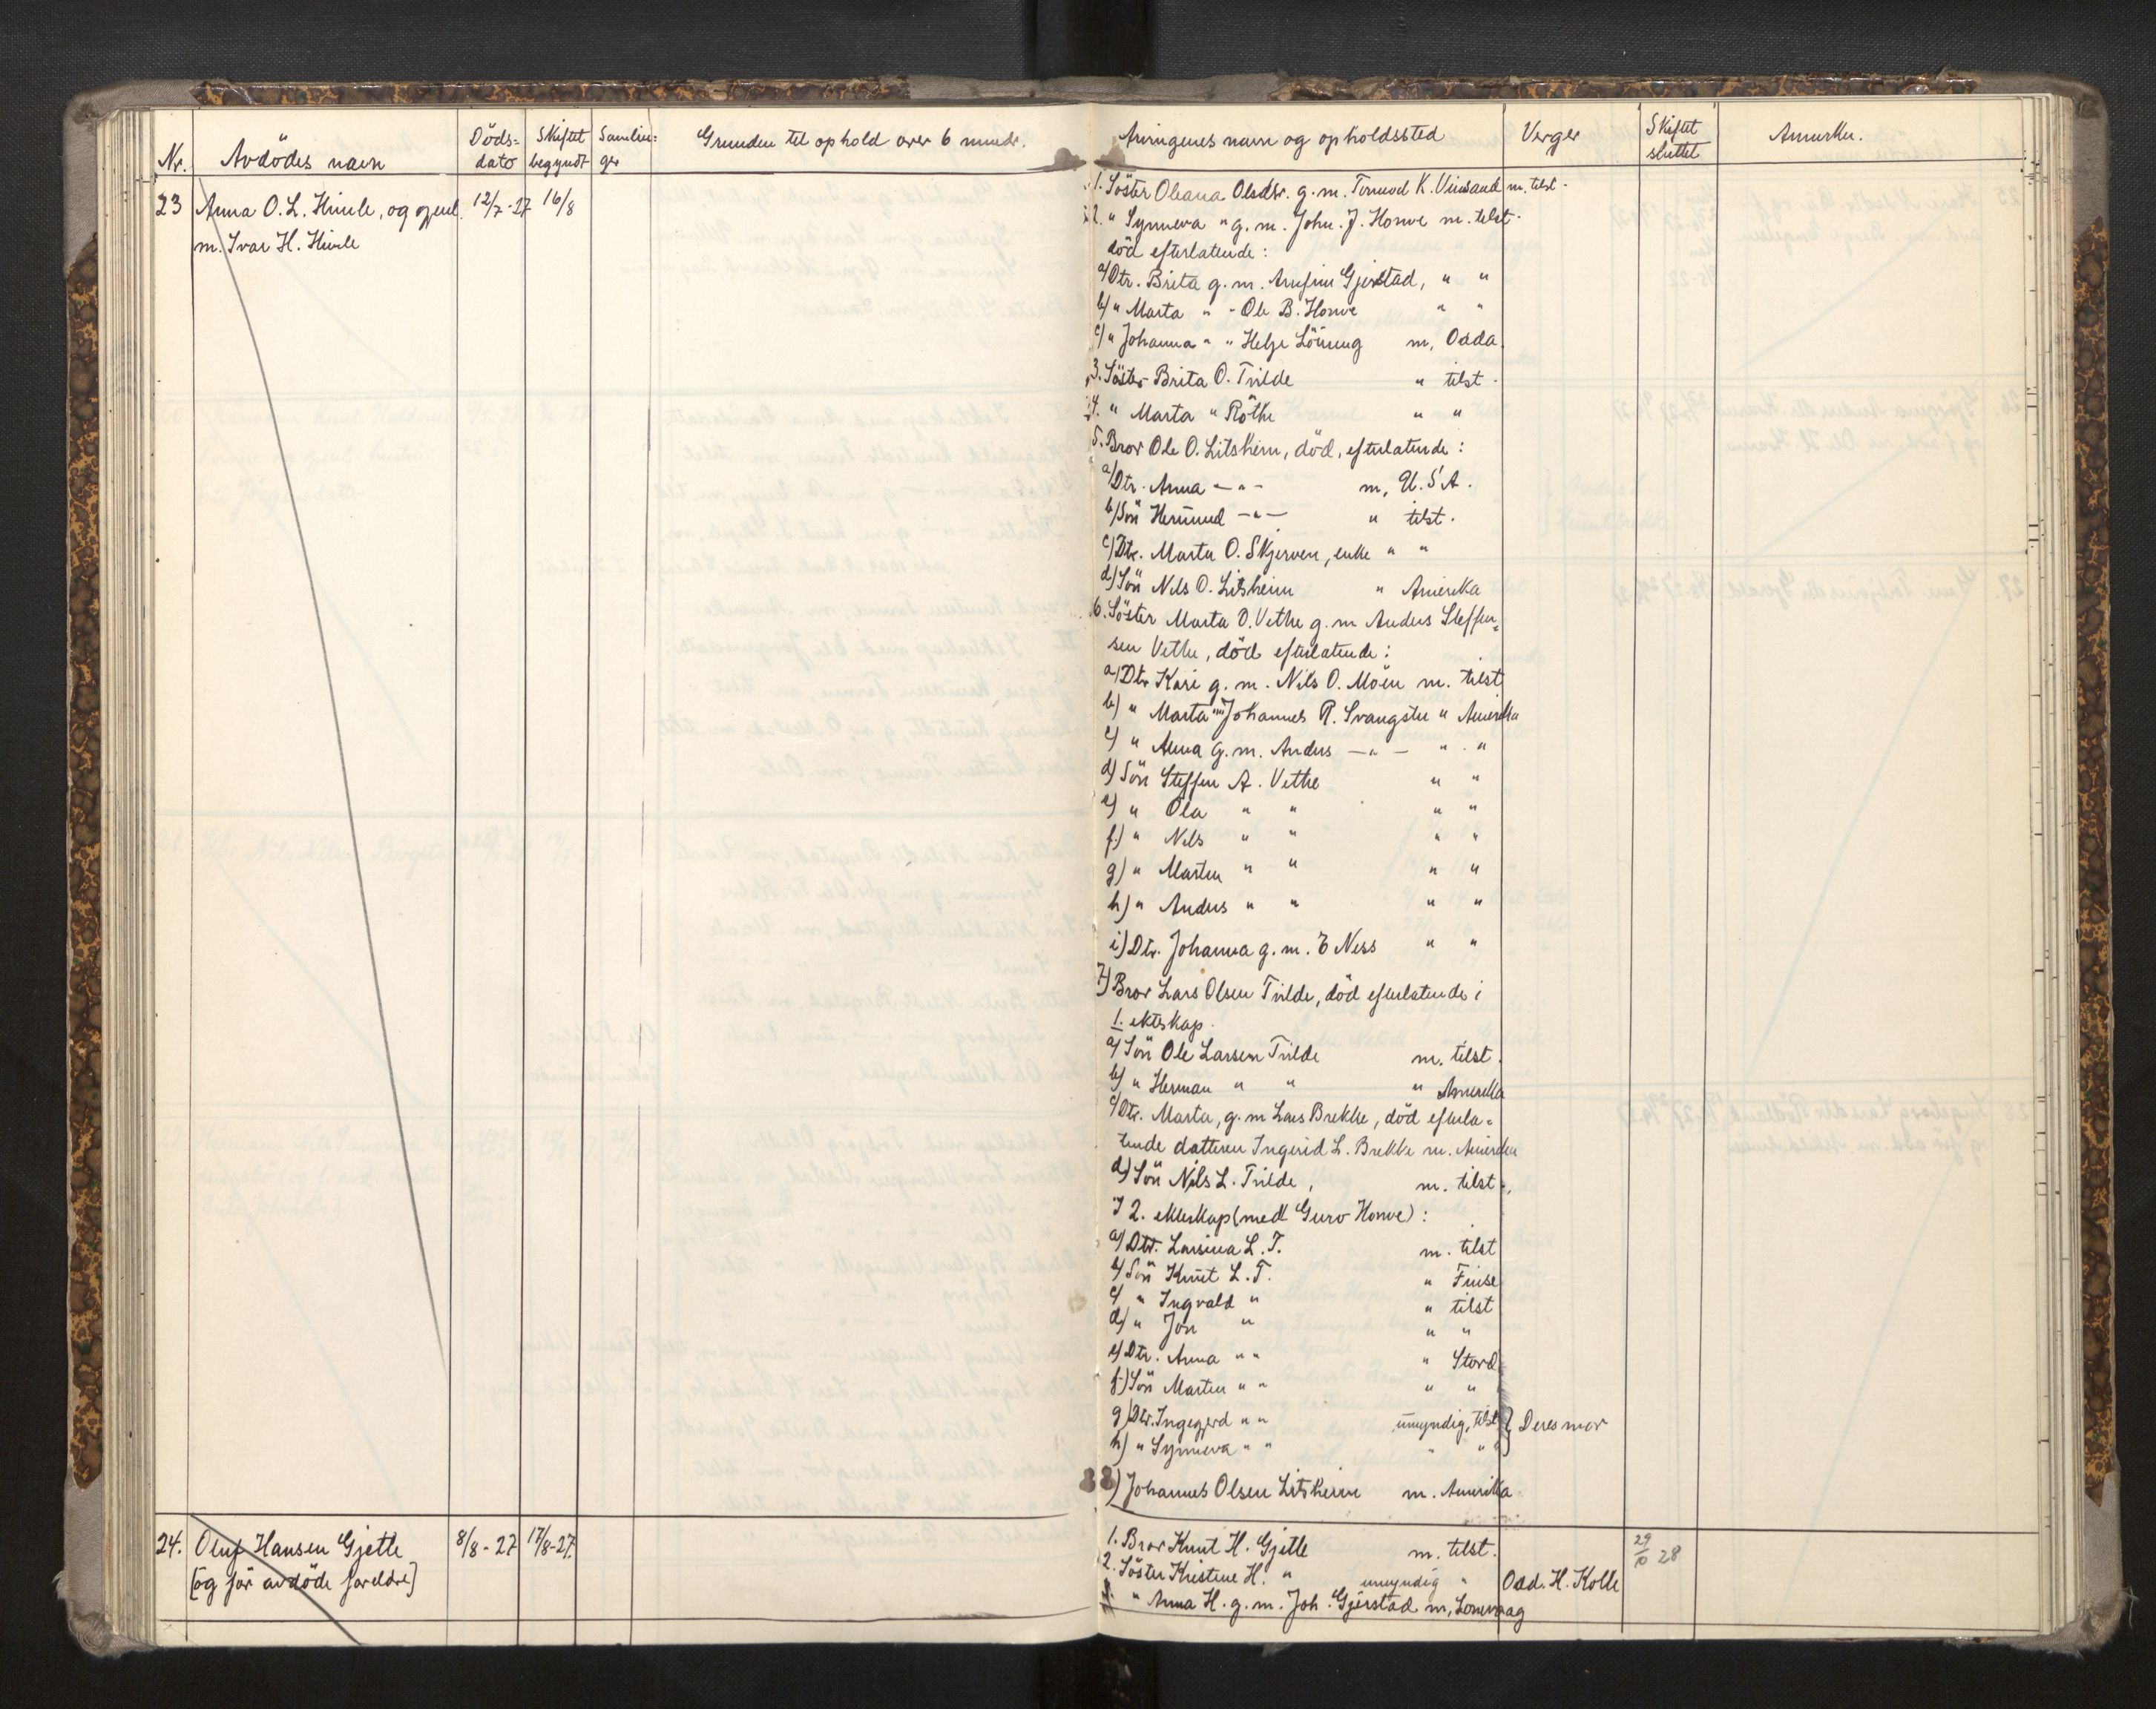 Nr. Avdödes navn Döds= dato Skiftet begyndt Samlin= ger Grunden til ophold over 6 mndr.
23 Anna O. L. Himle, og gjenl. 12/7-27 16/8
m. Ivar H. Himle
24. Oluf Hansen Gjelle 8/8-27 17/8-27.
[og før avdöde foreldre]
Arvingenes navn og opholdssted Verger Skiftet sluttet Anmerkn.
1. Söster Oleana Olsdtr. g. m. Tormod K. Vinsand m. tilst.
2. " Synneva " g. m. John. J. Honve m. tilst.
död efterlatende :
a) Dtr. Brita g. m. Arnfinn Gjerstad, " "
b) " Marta " - Ole B. Honve " "
c) " Johanna " " Helge Löning m, Odda.
3. Söster Brita O. Tvilde " tilst.
4. " Marta " Röthe " "
5. Bror Ole O. Litsheim, död, efterlatende :
a) Dtr. Anna - " - m, U. S A.
b) Sön Hermund - " - " tilst.
c) Dtr. Marta O. Skjerven, enke " "
d) Sön Nils O. Litsheim " Amerika
6. Söster Marta O. Vethe g. m Anders Steffen=
sen Vethe, död efterlatende :
a) Dtr Kari g. m. Nils O. Möen m. tilst
b) " Marta " Johannes R. Svangstu " Amerika
c) " Anna g. m. Anders - " - " "
d) Sön Steffen A. Vethe " "
e) " Ola " " " "
f) " Nils " " " "
g) " Marten " " " "
h) " Anders " " " "
i) Dtr. Johanna g. m. E Ness " "
7) Bror Lars Olsen Tvilde, död efterlatende i
1. ekteskap.
a) Sön Ole Larsen Tvilde m. tilst.
b) " Herman " " " Amerika
c) Dtr. Marta, g. m Lars Brekke, död efterla=
tende datteren Ingerid L. Brekke m. Amerika
d) Sön Nils L. Tvilde, m. tilst.
I 2. ekteskap (med Guro Honve) :
a) Dtr. Larsina L. T. m. tilst
b) Sön Knut L. T. " Finse
c) " Ingvald " " tilst
d) " Jon " " "
e) Dtr. Anna " " " Stord
f) Sön Marten " " " "
g) Dtr. Ingegjerd " " umyndig, tilst } Deres mor
h) " Synneva " " " "
8) Johannes Olsen Litsheim m. Amerika
1. Bror Knut H. Gjelle m. tilst. 29/10 28
2. Söster Kristine H. " umyndig " Odd. H. Kolle
3. " Anna H. g. m. Joh. Gjerstad m, Lonevaag